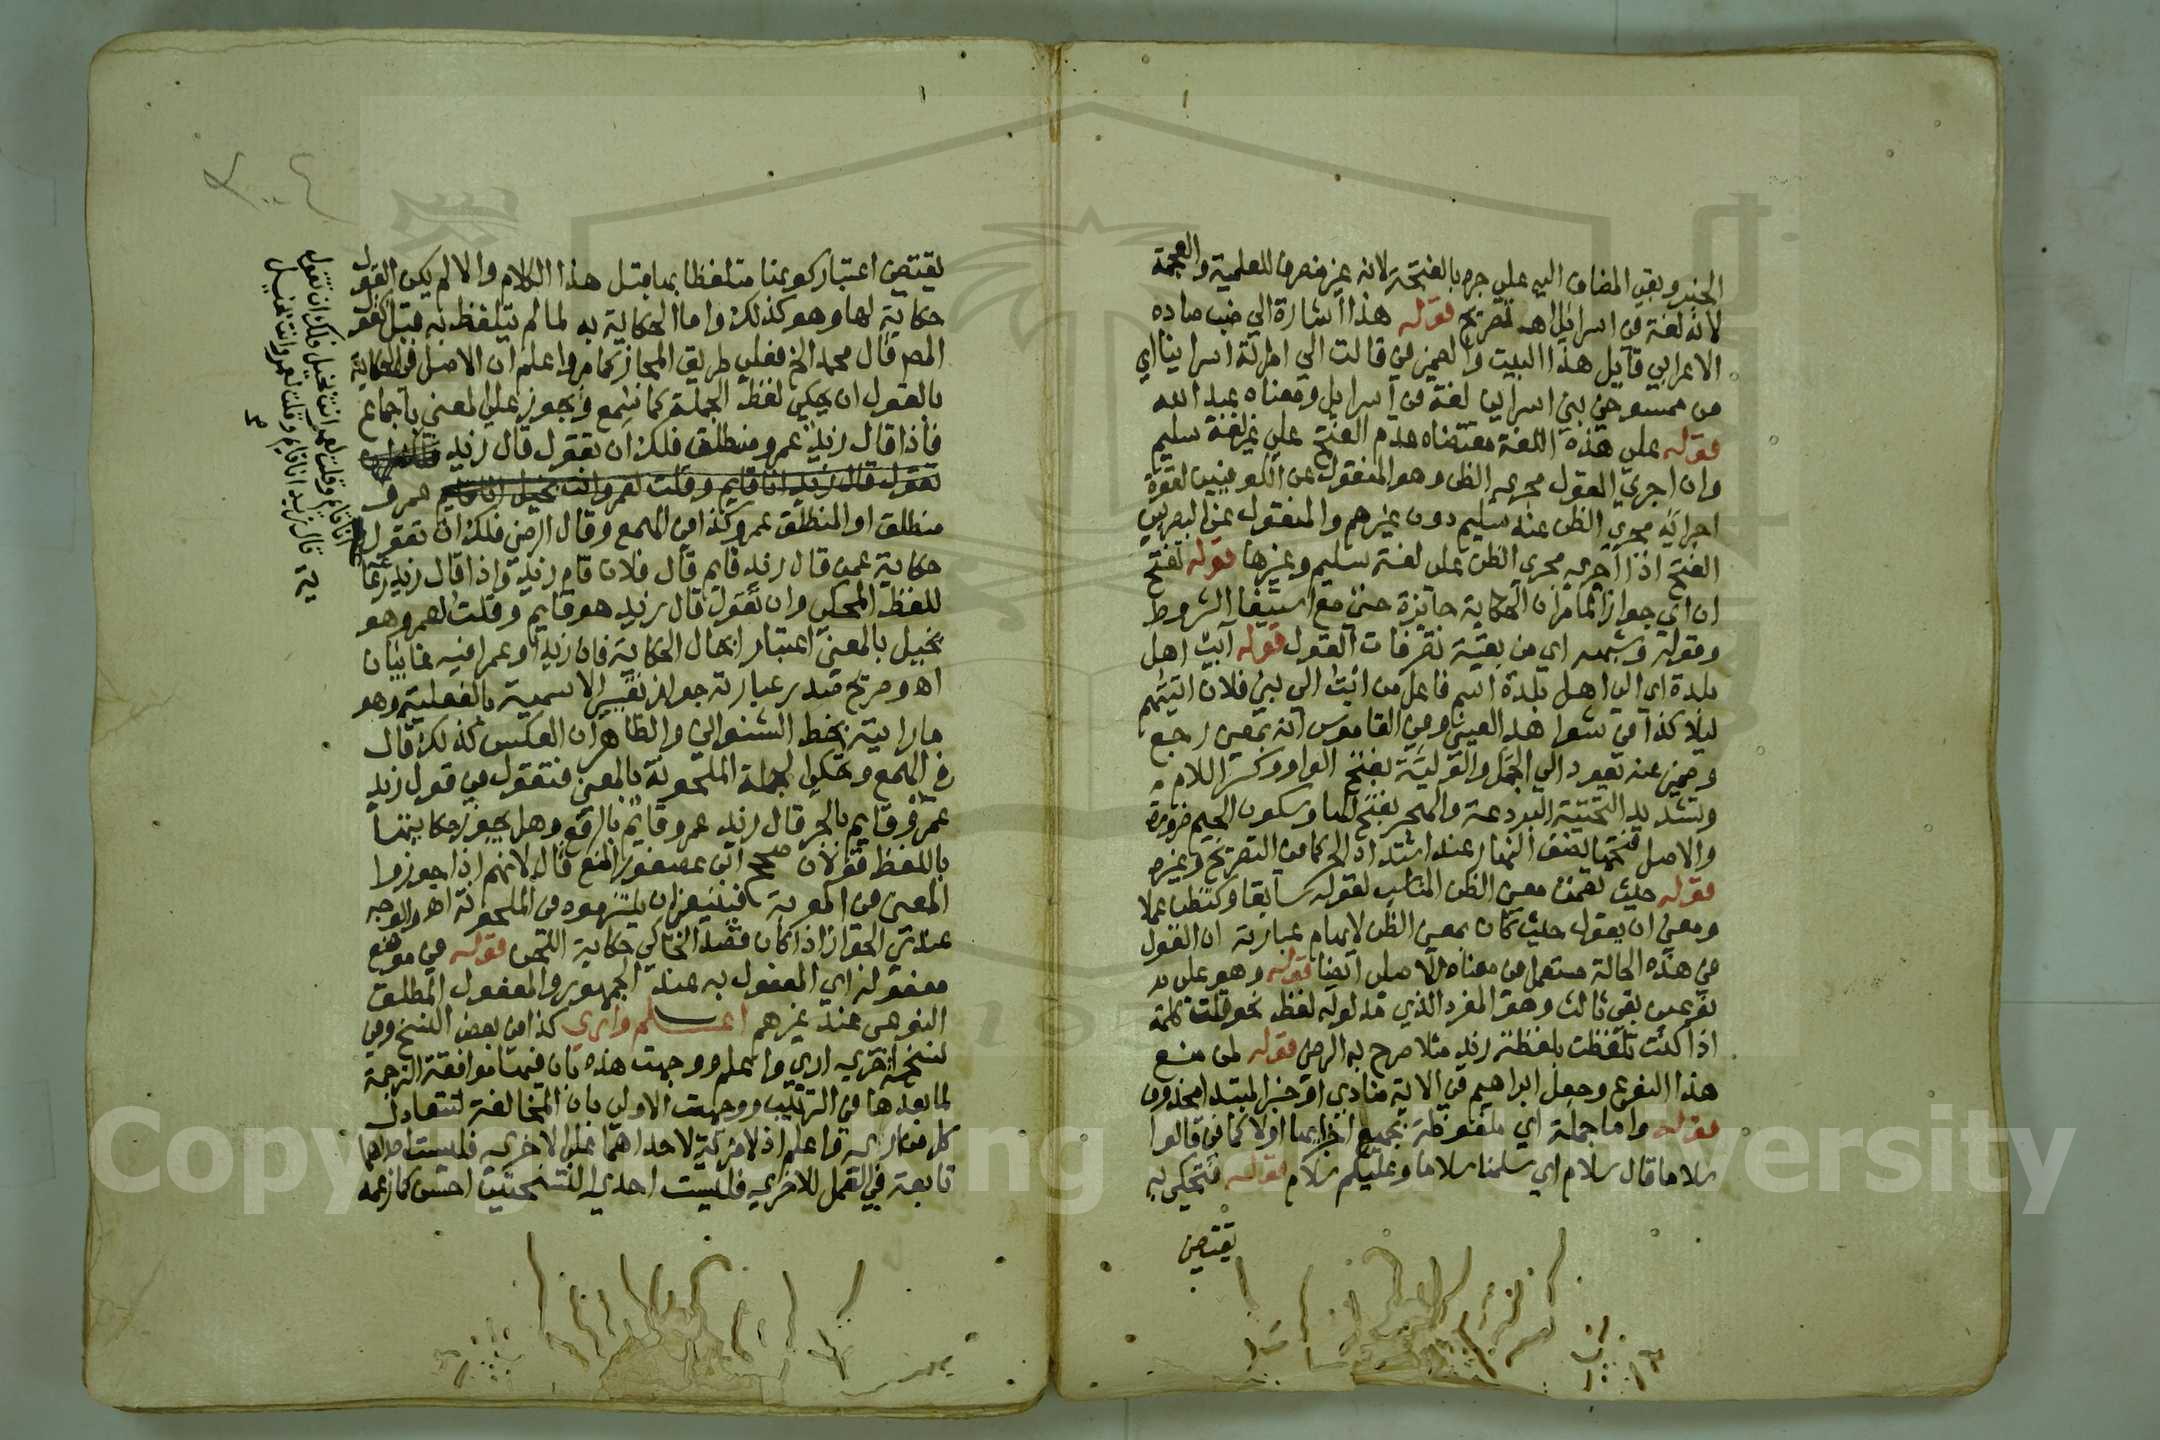 الخبر وبقي المضاف اليه على جره بالفتحة لانه غير منصرف للعلمية والعجمة
لانه لغة في اسرائيل اهـ تصريح قوله هذا اشارة الي ضب صاده
الاعرابي قايل هذا البيت والضمير في قالت الي امراته اسرايناي
من ممسوخي بني اسراين لغة في اسرايل ومعناه عبد الله
قوله على هذه اللغة مقتضاه عدم الفتح علي غير لغة سليم
وان اجري القول مجري الظن وهو المنقول عن الكوفيين لقوة
اجرائه مجري الظن عند سليم دون غيرهم والمنقول عن البصريين
الفتح اذا اجري مجري الظن على لغة سليم وغيرها قوله تفتح
ان اي جوازا لما مر ان الحكاية جايزة حتى مع استيفا الشروط
وقوله وشبهه اي من بقية تصرفات القول قوله آيب اهل
بلدة اي الي اهل بلدة اسم فاعل من ابت الي بني فلان اتيتهم
ليلا كذا في شواهد العيني وفي القاموس انه بمعنى رجع
وضمير عنه يعود الي الجمل والولية بفتح الواو وكسر اللام
وتشديد التحتية البردعة والهجر بفتح الها وسكون الجيم ضرورة
والاصل فتحها نصف النهار عند اشتداد الحر كما في التصريح وغيره
قوله حيث تضمن معنى الظن المناسب لقوله سابقا وكتظن عملا
ومعنى ان يقول حيث كان بمعنى الظن لايهام عبارته ان القول
في هذه الحالة مستعمل في معناه الاصلي ايضا قوله وهو على
نوعين بقي ثالث وهو المفرد الذي مدلوله لفظ نحو قلت كلمة
اذا كنت تلفظت بلفظة زيد مثلا صرح به الرضي قوله لمن منع
هذا النوع وجعل ابراهيم في الاية منادى او خبر المبتدا محذوف
قوله واما جملة اي ملفوظة بجميع اجزايها اولا كما في قالوا
سلاما قال سلام اي سلمنا سلاما وعليكم سلام قوله فتحكى به
يقتضي
يقتضي اعتبار كوننا متلفظا بها قبل هذا الكلام والا لم يكن القول
حكاية لها وهو كذلك واما الحكاية به لما لم يتلفظ به قبل كقول
المص قال محمد الخ فعلى طريق المجاز كما مر واعلم ان الاصل في الحكاية
بالقول ان يحكي لفظ الجملة كما سمع ويجوز علي المعنى باجماع
فاذا قال زيد عمرو منطلق فلك ان تقول قال زيد
تقول قال زيد انا قايم وقلت لعمرو انت بخيل انا قايم عمرو
منطلق او المنطلق عمرو كذا في الهمع وقال الرضي فلك ان تقول
حكاية عمن قال زيد قايم قال فلان قام زيد واذا قال زيد
للفظ المحكي وان تقول قال زيد هو قايم وقلت لعمرو هو
بخيل بالمعنى اعتبارا بحال الحكاية فان زيدا وعمرا فيه غايبان
اهـ وصريح صدر عبارته جواز تغيير الاسمية بالفعلية وهو
ما رايته بخط الشنواني والظاهر ان العكس كذلك قال
في الهمع وتحكي الجملة الملحونة بالمعنى فتقول في قول زيد
عمرو قايم بالجر قال زيد عمرو قايم بالرفع وهل يجوز حكايتها
باللفظ قولان صحح ابن عصفور المنع قال لانهم اذا جوزوا
المعنى في المعربة فينبغي ان يلتزموه في الملحونة اهـ والوجه
عندي الجواز اذا كان قصد الحاكي حكاية اللحن قوله في موضع
مفعوله اي المفعول به عند الجمهور والمفعول المطلق
النوعي عند غيرهم اعلم وأري كذا في بعض النسخ وفي
نسخ اخرى اري واعلم ووجهت هذه بان فيها موافقة الترجمة
لما بعدها في الترتيب ووجهت الاولي بان المخالفة لتتعادل
كل من اري واعلم اذ لا مزية لاحداهما على الاخرى فليست احداهما
تابعة في العمل للاخرى فليست احدي النسختين احسن كما زعمه
انا قايم وقلت لعمرو انت بخيل فلك ان تقول
قال زيد انا قايم وقلت لعمرو انت بخيل
Copy
ng
University